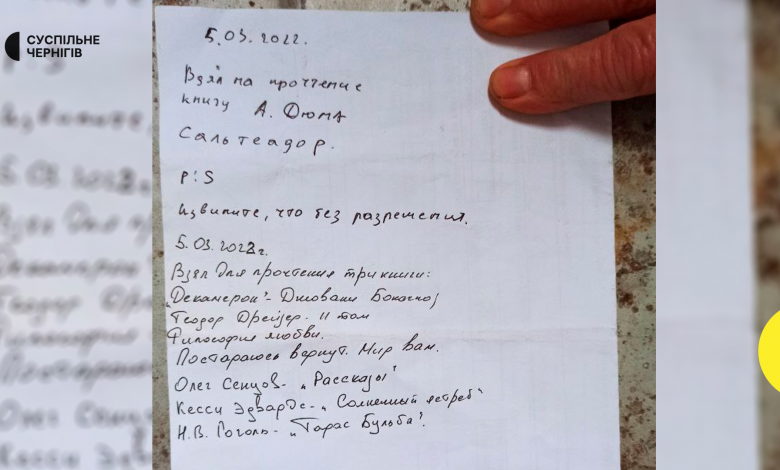 СУСПІЛЬНЕ
ЧЕРНІГІВ
5.03.2022.
Взял на прочтение
книгу А. Дюма
Сальтеадор.
P:S
Извините, что без разрешения.
5.03.2022г.
Взял для прочтения три книги:
„Декамерон" - Джовани Бокаччо;
Теодор Драйзер - II том
Философия любви.
Постараюсь вернут. Мир вам.
Олег Сенцов - „Рассказы"
Кесси Эдвардс - „Солнечный ястреб"
Н.В. Гоголь - „Тарас Бульба".